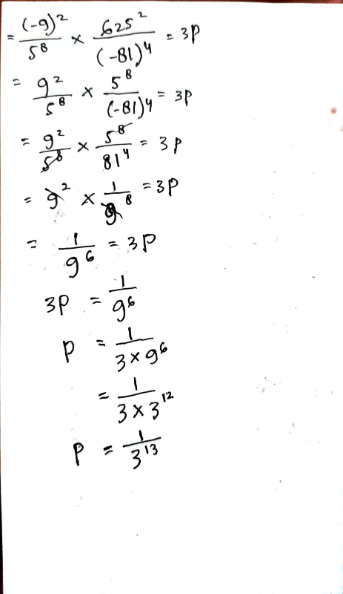 = (-9)²/5⁸ × 625²/(-81)⁴ = 3p
= 9²/5⁸ × 5⁸/(-81)⁴ = 3p
= 9²/5⁸ × 5⁸/81⁴ = 3p
= 9² × 1/9⁸ = 3p
= 1/9⁶ = 3p
3p = 1/9⁶
p = 1/3×9⁶
= 1/3×3¹²
p = 1/3¹³